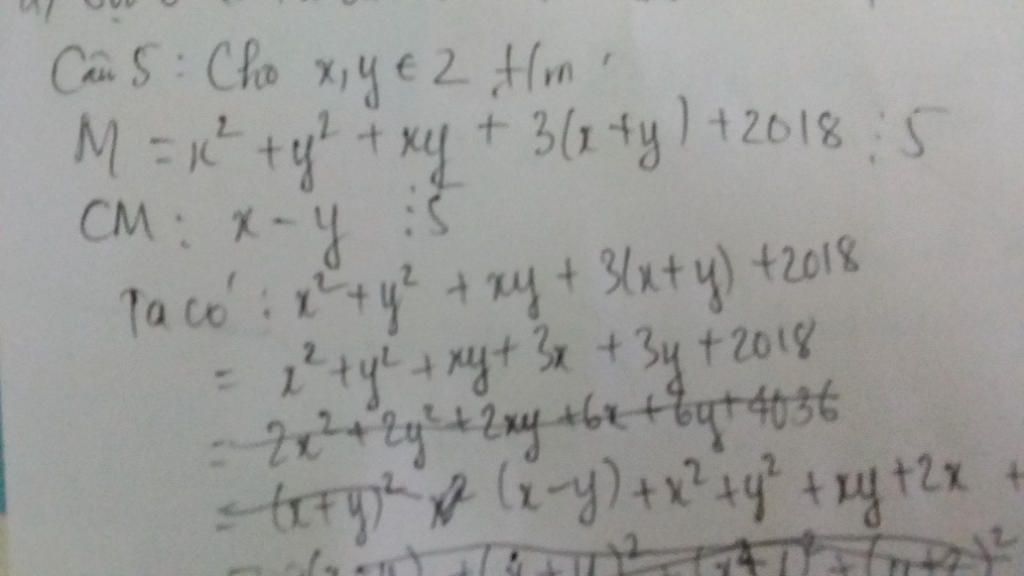 Câu 5 : Cho x, y ∈ Z t/m
M = x² + y² + xy + 3(x+y) + 2018 ⋮ 5
CM : x - y ⋮ 5
Ta có : x² + y² + xy + 3(x+y) + 2018
= x² + y² + xy + 3x + 3y + 2018
= 2x² + 2y² + 2xy + 6x + 6y + 4036
= (x+y)² (x-y) + x² + y² + xy + 2x +